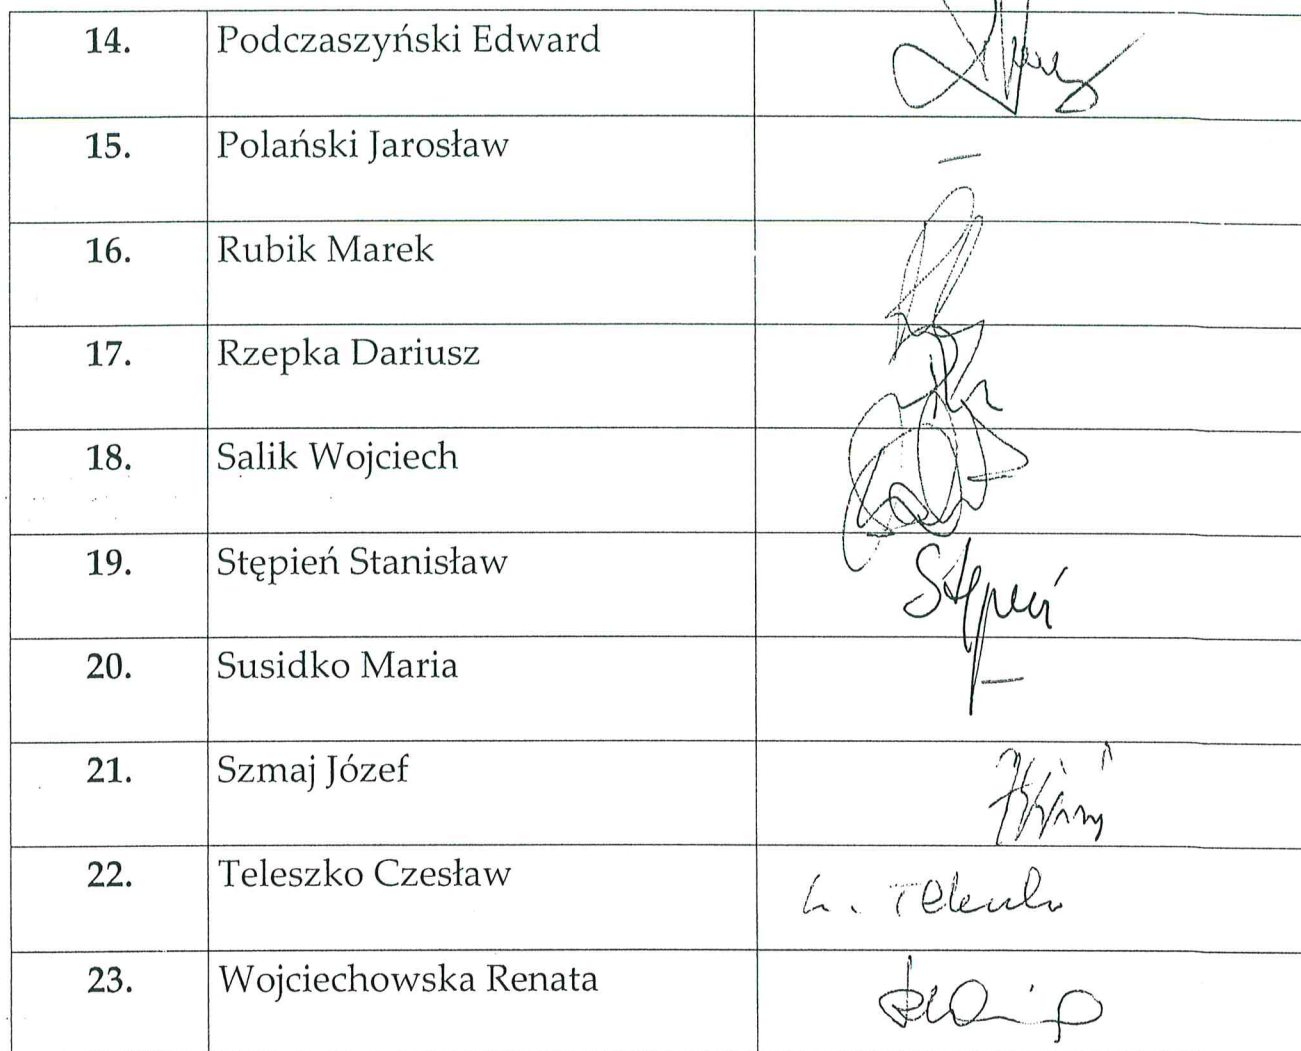 14. Podczaszyński Edward
15. Polański Jarosław –
16. Rubik Marek
17. Rzepka Dariusz
18. Salik Wojciech
19. Stępień Stanisław Stępień
20. Susidko Maria –
21. Szmaj Józef
22. Teleszko Czesław
23. Wojciechowska Renata